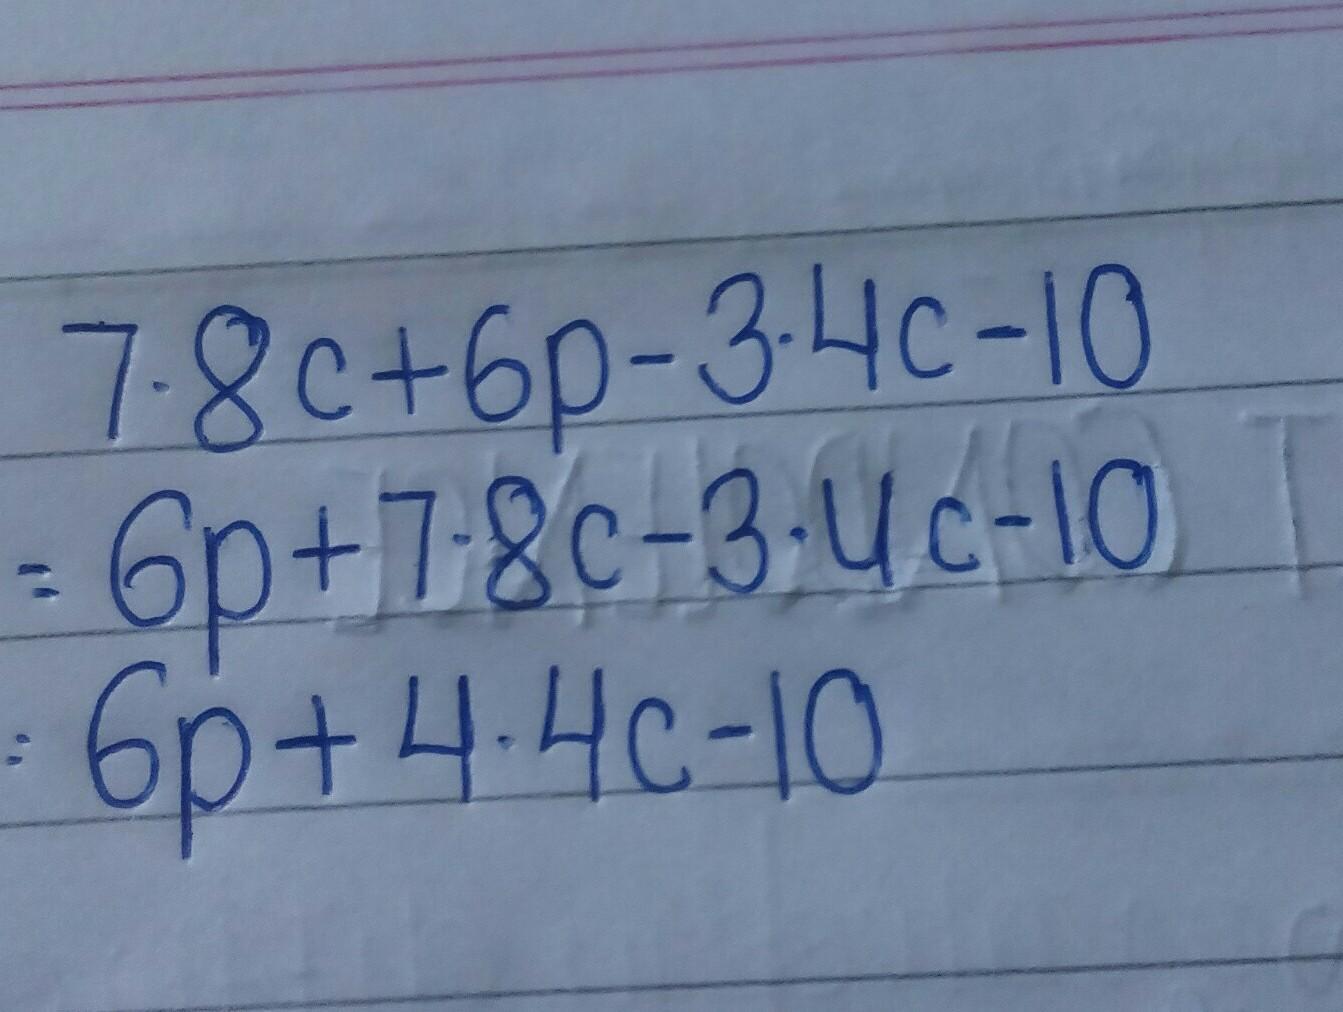 7·8c+6p-3·4c-10
= 6p+7·8c-3·4c-10
= 6p+4·4c-10